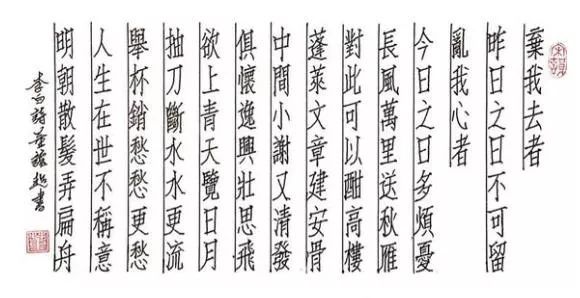 棄我去者
昨日之日不可留
亂我心者
今日之日多煩憂
長風萬里送秋雁
對此可以酣高樓
蓬萊文章建安骨
中間小謝又清發
俱懷逸興壯思飛
欲上青天覽日月
抽刀斷水水更流
舉杯銷愁愁更愁
人生在世不稱意
明朝散髮弄扁舟
李白詩 書